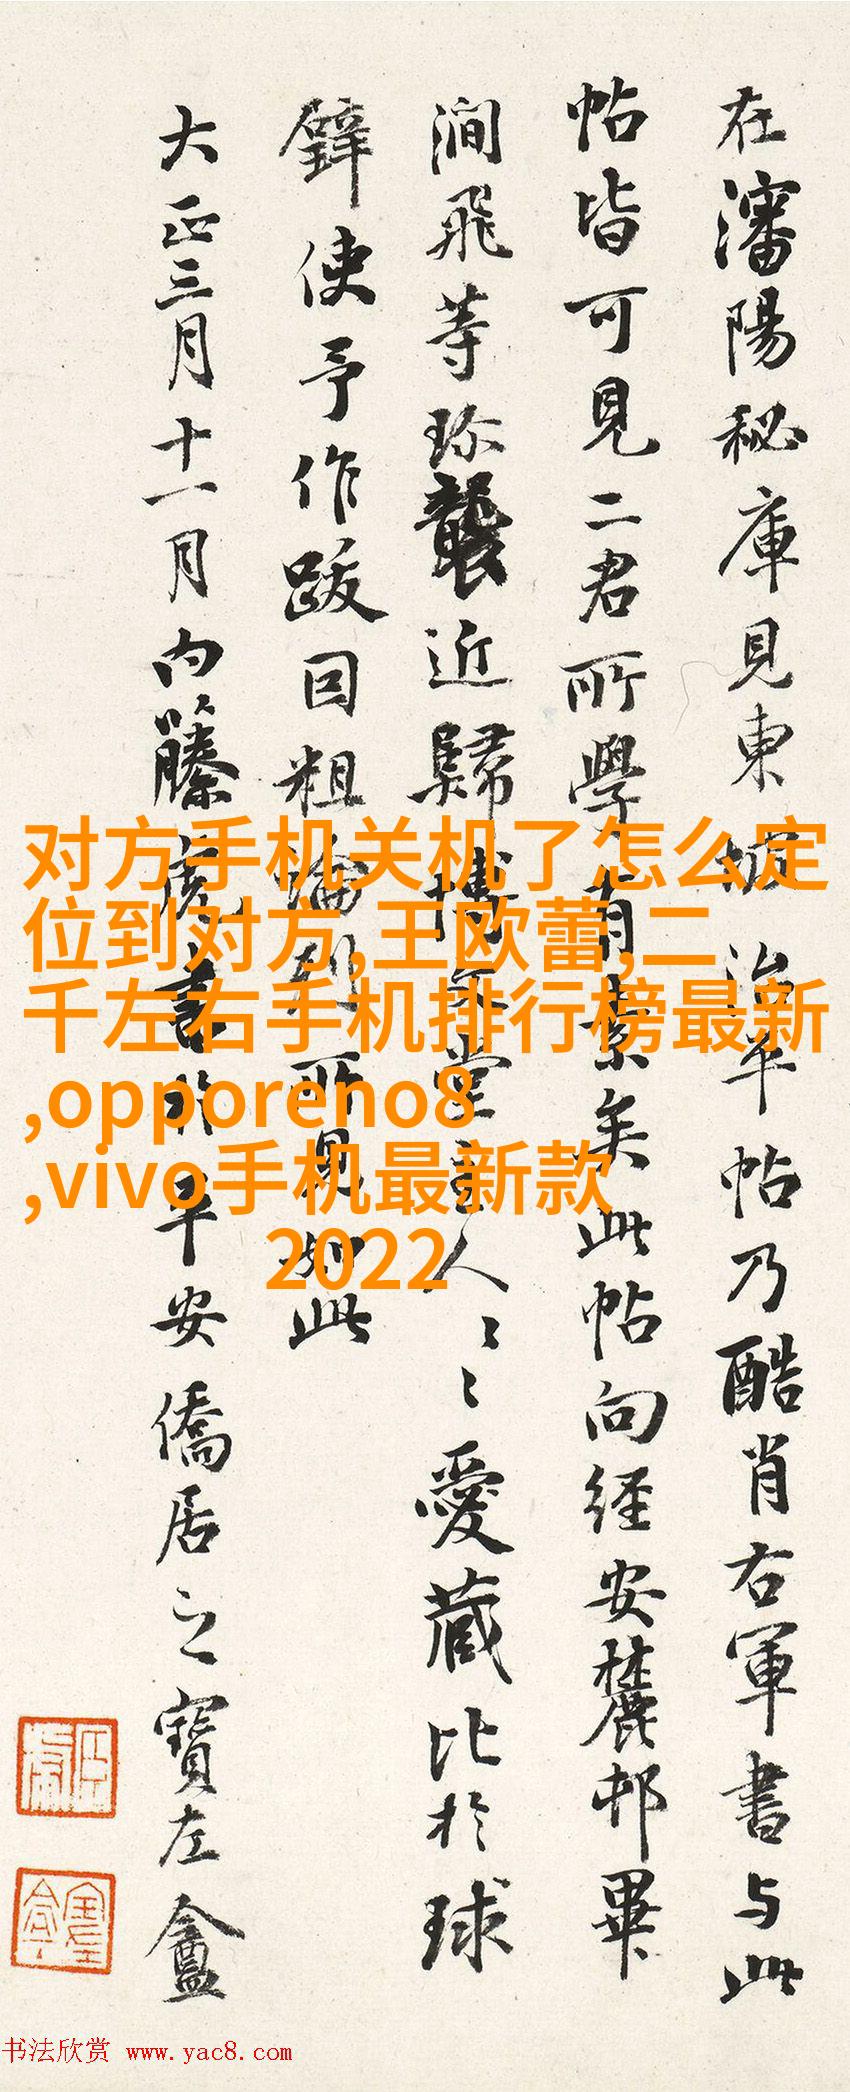 在瀋陽秘庫見東坡治平帖乃酷肖右軍書与此
帖皆可見二君所學有素矣此帖向経安麓邨畢
澗飛等珎襲近歸博文堂主人〻〻愛蔵比於球
鐴使予作跋因粗論列所見如此
大正三月十一月内藤虎書於平安僑居之寶左盦
对方手机关机了怎么定
位到对方,王欧蕾,二
千左右手机排行榜最新
,opporeno8
,vivo手机最新款
2022
书法欣赏 www.yac8.com